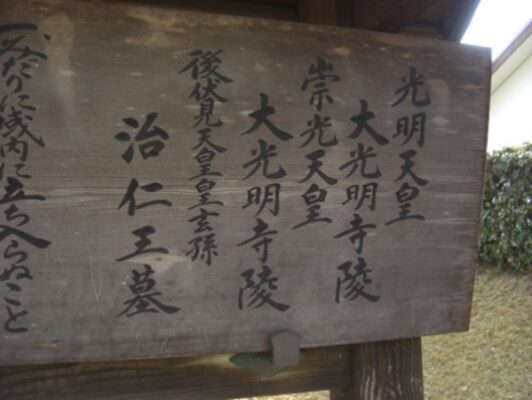 光明天皇
大光明寺陵
崇光天皇
大光明寺陵
後伏見天皇皇玄孫
治仁王墓
一、みだりに域内に立ち入らぬこと